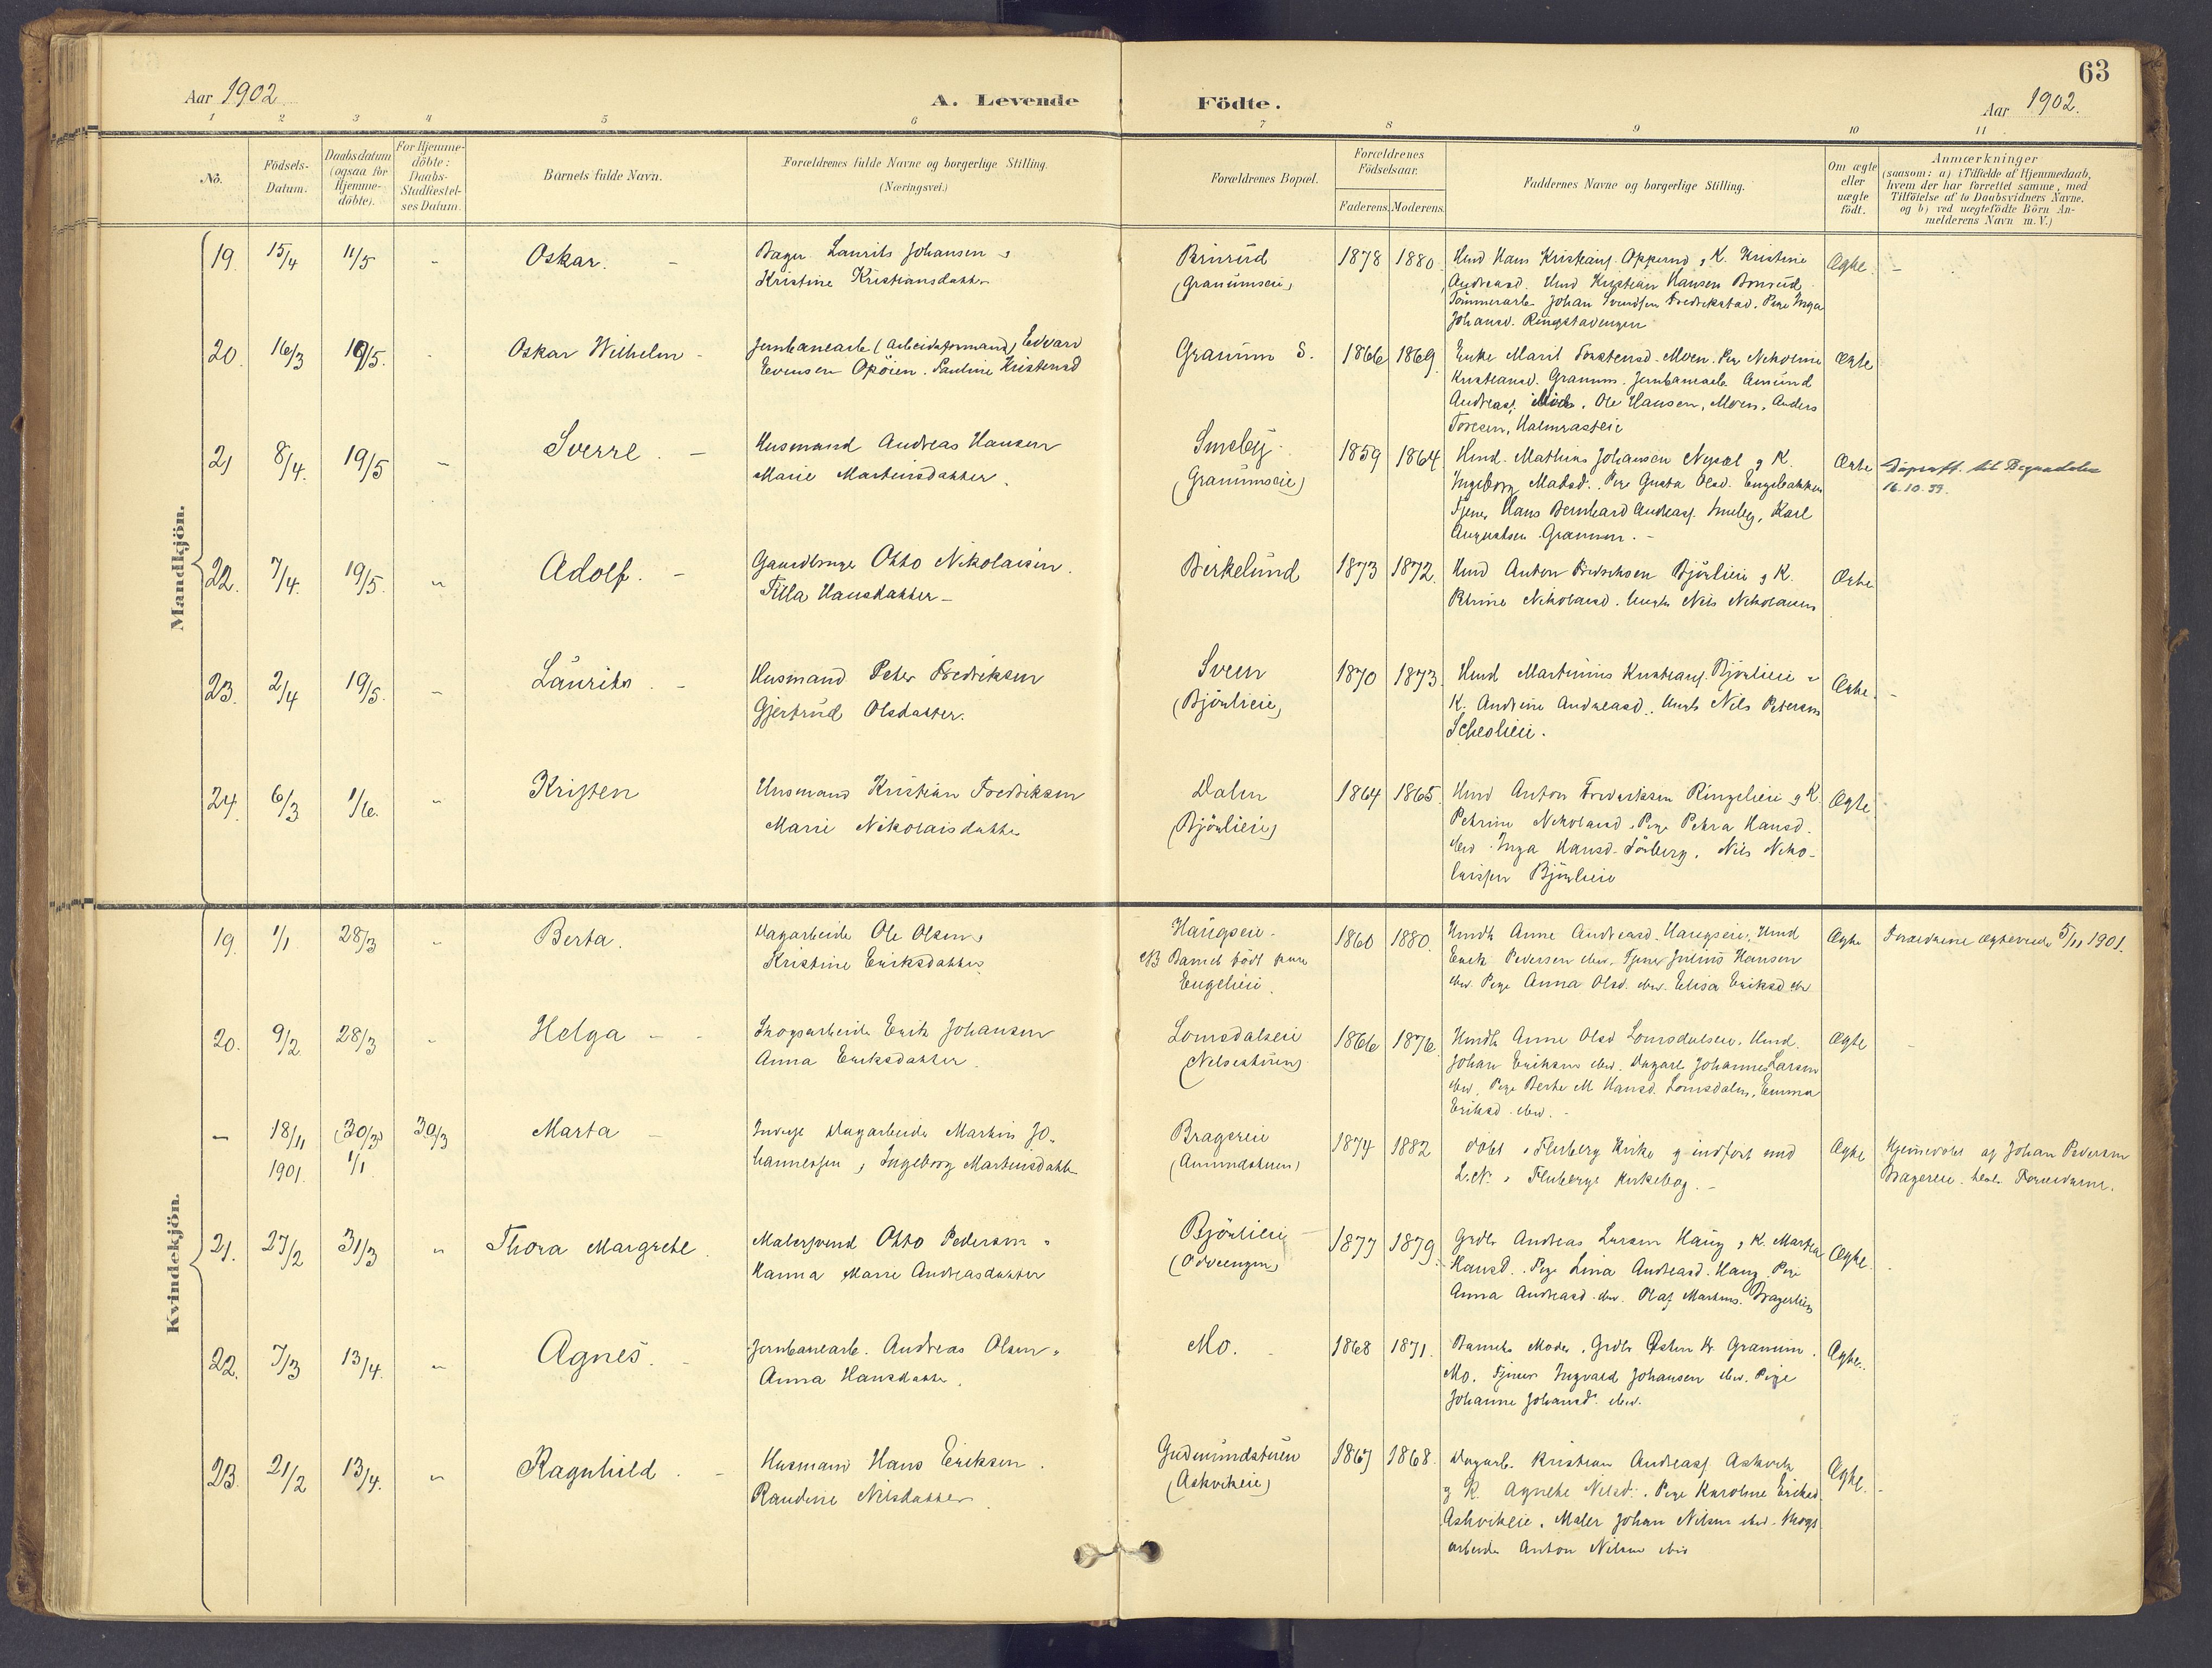 63
Aar 1902
A. Levende
Födte.
Aar 1902.
1 2 3 4 5 6 7 8 9 10 11
No.
Födsels-
Datum.
Daabsdatum
(ogsaa for
Hjemme-
döbte).
For Hjemme-
döbte:
Daabs-
Stadfæstel-
ses Datum.
Barnets fulde Navn.
Forældrenes fulde Navne og borgerlige Stilling.
(Næringsvei.)
Forældrenes Bopæl.
Forældrenes
Födselsaar.
Faderens. Moderens.
Faddernes Navne og borgerlige Stilling.
Om ægte
eller
uægte
födt.
Anmærkninger
(saasom: a) i Tilfælde af Hjemmedaab,
hvem der har forrettet samme, med
Tilföielse af to Daabsvidners Navne.
og b) ved uægtefödte Börn An-
melderens Navn m. V.)
Mandkjön.
19. 15/4 11/5 Oskar.
Bager Laurits Johansen
Kristine Kristiansdatter
Brinrud
(Granumseie)
1878 1880.
Hmd Hans Kristians. Opperud, K. Kristine
Andreasd. Hmd Kristian Hansen Brinrud
Tömmerarb. Johan Svendsen Fredrikstad. Pige Inga
Johansd. Ringstadengen
Ægte.
20. 16/3 19/5. Oskar Wilhelm
Jernbanearb (arbeidsformand) Edvard
Evensen Opöien. Pauline Kristensd
Granum S.
1866 1869.
Enke Marit Torstensd. Moen. Pige Nikoline
Kristiansd. Granum. Jernbanearb Amund
Andreass. Ole Hansen, Moen, Anders
Toresen, Halmrasteie
Ægte
21 8/4. 19/5 Sverre.
Husmand Andreas Hansen
Marie Martinsdatter.
Smeby
(Granumseie)
1859 1864.
Hmd. Mathias Johansen og K.
Ingeborg Matsd. Pige Gusta Olsd. Engebakken
Tjener Hans Bernhard Andreass. Smeby, Karl
Augustsen Granum.
Ægte
16.10.39.
22. 7/4. 19/5. Adolf.
Gaardbruger Otto Nikolaisen.
Tilla Hansdatter
Birkelund
1873 1872.
Hmd Anton Fredriksen Bjönlieie og K.
Petrine Nikolaisd. Ungk Nils Nikolaisen
Ægte
23. 2/4 19/5. Laurits.
Husmand Peter Fredriksen
Gjertrud Olsdatter.
Sveen
(Bjönlieie)
1870 1873.
Hmd Martinius Kristians. Bjönlieie
K. Andrine Andreasd. Ungk Nils Petersen
Ægte.
24. 6/3 1/6. Kristen
Husmand Kristian Fredriksen
Marie Nikolaisdatter
Dalen
(Bjönlieie)
1864 1865.
Hmd Anton Fredriksen Ringelieie og K.
Petrine Nikolaisd. Pige Petra Hansd.
ibid. Inga Hansd. Nils Niko-
laissen Bjönlieie
Ægte
Kvindekjön.
19. 1/1 28/3 Berta.
Dagarbeider Ole Olsen
Kristine Eriksdatter
Haugseie.
NB Barnet födt paa
Engelieie.
1860 1880.
Hmdk Anne Andreasd. Haugseie. Hmd
Erik Pedersen ibid. Tjener Julius Hansen
ibid. Pige Anna Olsd. ibid. Elisa Eriksd ib
Ægte
Forældrene ægteviede 5/11 1901.
20. 9/2 28/3 Helga
Skogsarbeider Erik Johansen
Anna Eriksdatter.
Lomsdalseie
(Nelsestuen)
1866 1876.
Hmdk Anne Olsd Lomsdalseie. Hmd.
Johan Eriksen ibid. Dagarb Johannes Larsen
ibid. Pige Berte M. Hansd. Lomsdalen, Emma
Eriksd. ibid.
Ægte
18/11 1901. (30/3) 1/1 30/3 Marta
Inderst Dagarbeider Martin Jo-
hannessen, Ingeborg Martinsdatter
Brageneie
(Amundstuen)
1874 1882
döbt i Fluberg Kirke og indfört med
L.N. i Flubergs Kirkebog.
Ægte
Hjemmedöbt af Johan Pedersen
Forældrene.
21. 27/2 31/3 Thora Margrethe.
Malersvend Otto Pedersen
Hanna Marie Andreasdatter
Bjönlieie
(Odveengen)
1877 1879.
Grdbr Andreas Larsen Haug, K. Martea
Hansd. Pige Lina Andreasd. Haug. Pige
Anna Andreasd. ibid. Olaf Martins.
Ægte.
22. 7/3 13/4. Agnes.
Jernbanearb. Andreas Olsen
Anna Hansdatter.
Mo.
1868 1871.
Barnets Moder, Grdbr Østen Kr. Granum.
Mo. Tjener Ingvald Johansen ibid. Pige
Johanne Johansd. ibid.
Ægte.
23. 21/2 13/4. Ragnhild.
Husmand Hans Eriksen.
Randine Nilsdatter.
Gudmundstuen
(Askvikeie)
1867 1868.
Dagarb. Kristian Andreass Askvik
og K. Agnethe Nilsd. Pige Karoline Eriksd.
Askvikeie. Maler Johan Nilsen ibid. Skogs
arbeider Anton Nilsen ibid
Ægte.